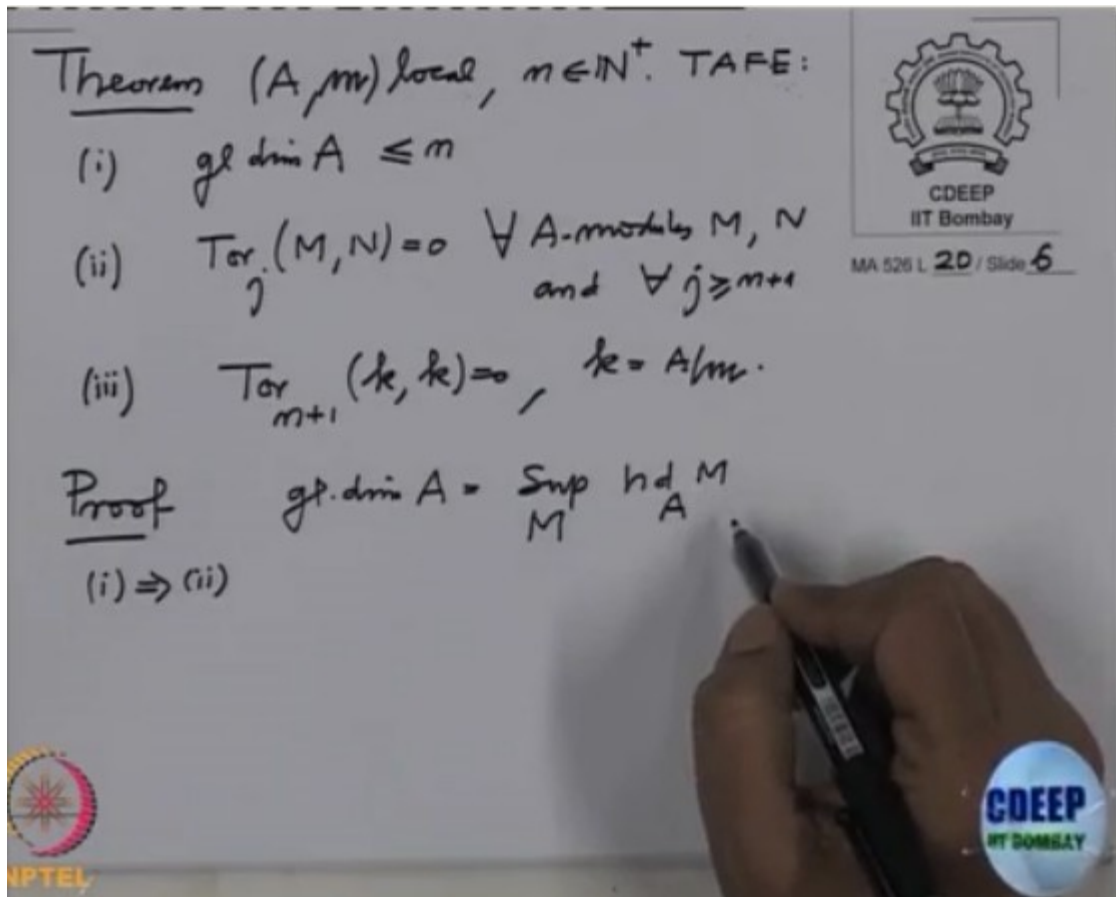 Theorem (A, m) local, n ∈ ℕ⁺. TAFE:
(i) gl dim A ≤ n
(ii) Tor_j (M, N) = 0 ∀ A-modules M, N
and ∀ j ≥ n+1
(iii) Tor_{n+1} (k, k) = 0, k = A/m.
Proof gl. dim A = Sup_M hd_A M
(i) ⇒ (ii)
CDEEP
IIT Bombay
MA 526 L 20 / Slide 6
NPTEL
CDEEP
IIT BOMBAY